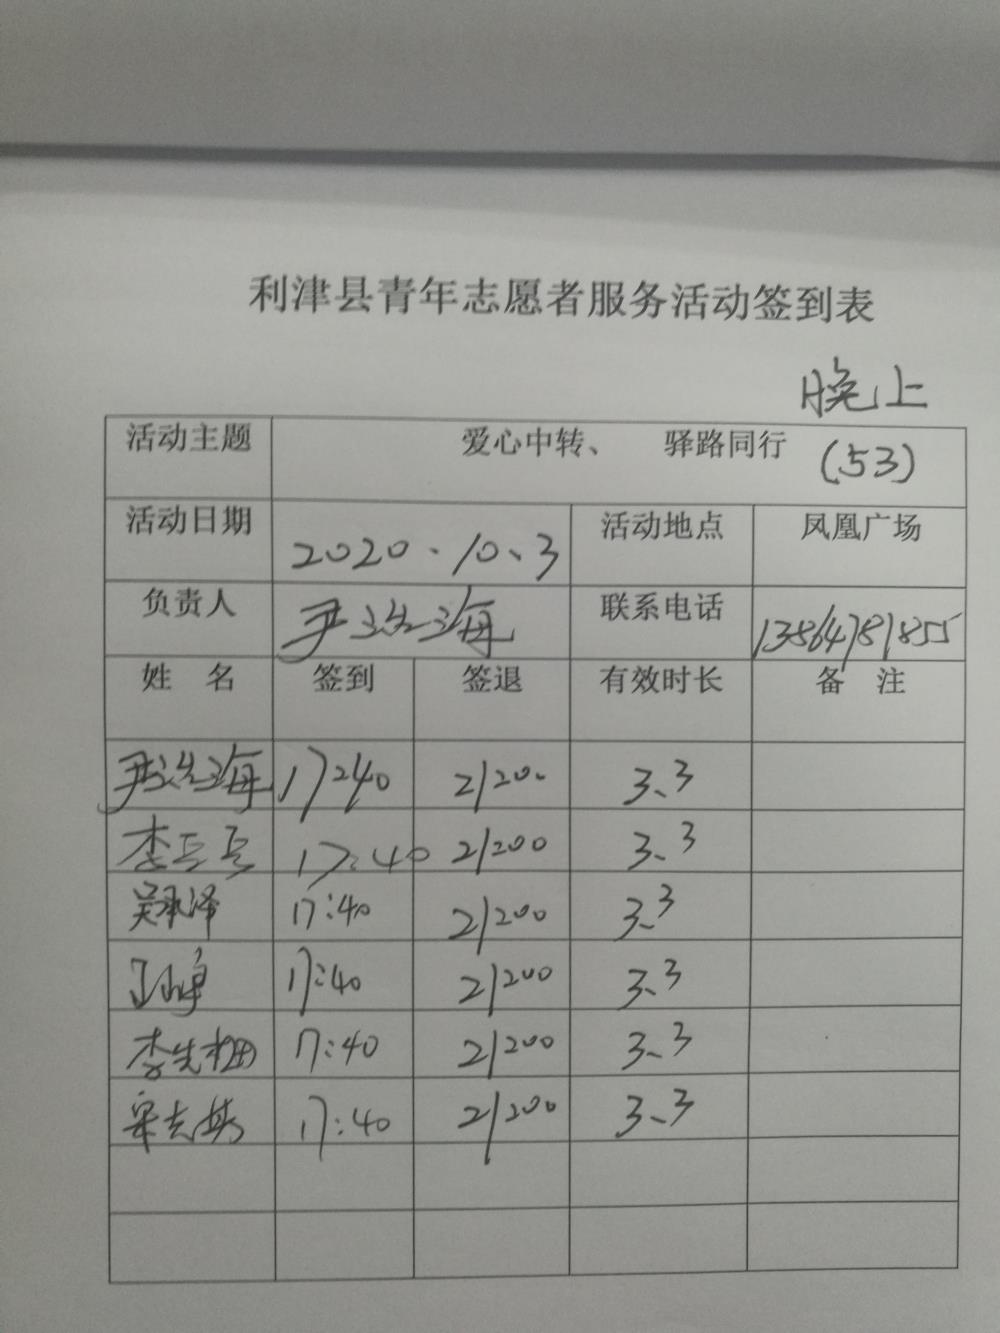 利津县青年志愿者服务活动签到表
晚上
活动主题 爱心中转、 驿路同行 (53)
活动日期 2020.10.3 活动地点 凤凰广场
负责人 尹 海 联系电话 13864781855
姓 名 签到 签退 有效时长 备 注
尹 海 17:40 21:00 3.3
李兵兵 17:40 21:00 3.3
吴承泽 17:40 21:00 3.3
17:40 21:00 3.3
李先 17:40 21:00 3.3
宋志 17:40 21:00 3.3